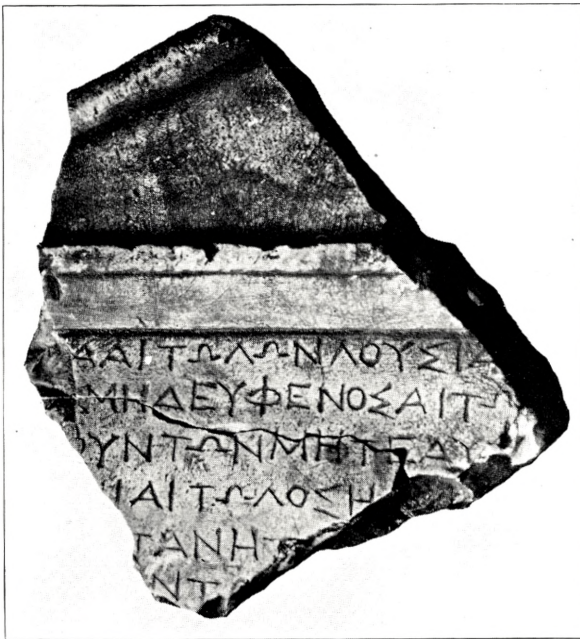 ΑΑΙΤΩΛΩΝΛΟΥΣΙΑ
ΜΗΔΕΥΦΕΝΟΣΑΙΤΩ
ΟΥΝΤΩΝΜΗΤΕΔΥ
ΙΑΙΤΩΛΟΣΗ
ΤΑΝΗΤ
ΝΤ